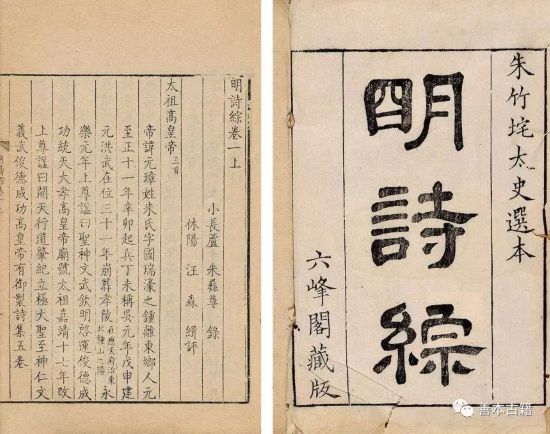 朱竹垞太史選本
明詩綜
六峰閣藏版
明詩綜卷一上
小長蘆 朱彝尊 錄
休陽 汪森 緝評
太祖高皇帝三首
帝諱元璋姓朱氏字國瑞濠之鍾離東鄉人元
至正十一年辛卯起兵丁未稱吳元年戊申建
元洪武在位三十一年崩葬孝陵在應天府治東北鍾山之陽永
樂元年上尊謚曰聖神文武欽明啓運俊德成
功統天大孝高皇帝廟號太祖嘉靖十七年改
上尊謚曰開天行道肇紀立極大聖至神仁文
義武俊德成功高皇帝有御製詩集五卷
善本古籍